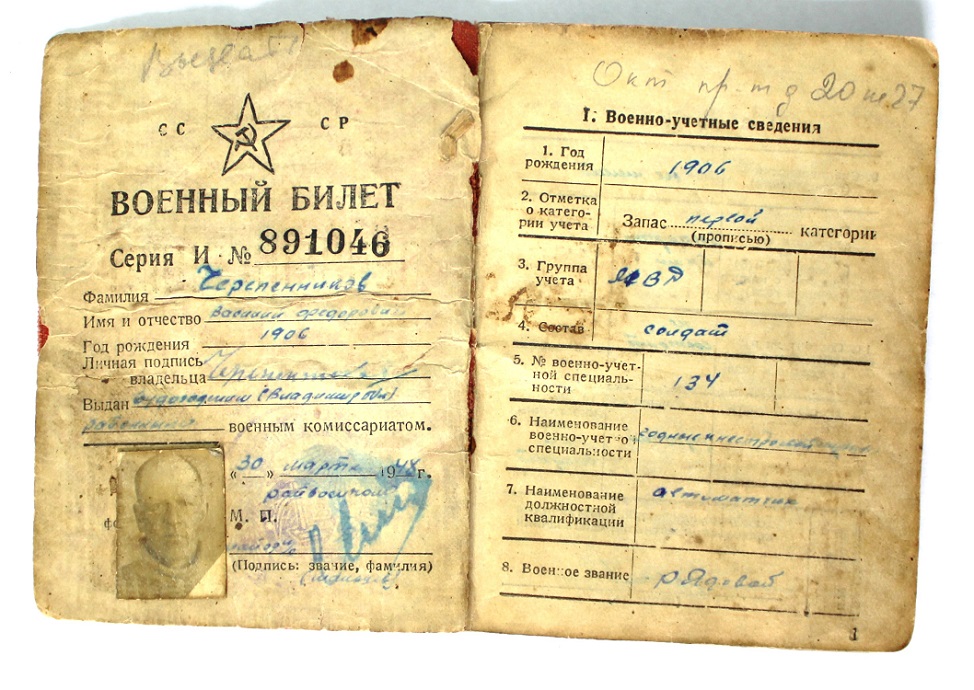 Вызвать
СС СР
ВОЕННЫЙ БИЛЕТ
Серия И № 891046
Фамилия Черепенников
Имя и отчество Василий Федорович
Год рождения 1906
Личная подпись
владельца
Выдан Судогодским (Владимирской)
районным военным комиссариатом.
«30» марта 1948 г.
райвоенком
М. П.
майор
(Подпись: звание, фамилия)
Окт 20 27
I. Военно-учетные сведения
1. Год
рождения 1906
2. Отметка
о катего-
рии учета Запас первой категории
(прописью)
3. Группа
учета МВД
4. Состав солдат
5. № военно-учет-
ной специаль-
ности 134
6. Наименование
военно-учетной
специальности
7. Наименование
должностной
квалификации автоматчик
8. Военное звание рядовой
1